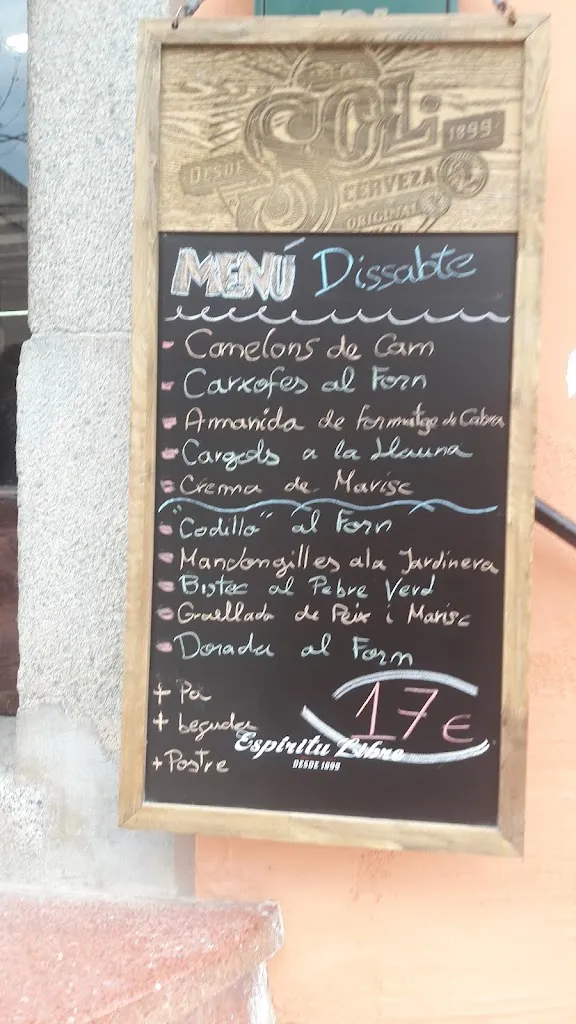 SOL
DESDE
1899
CERVEZA
ORIGINAL
MENÚ Dissabte
- Canelons de Carn
- Carxofes al Forn
- Amanida de formatge de Cabra
- Cargols a la Llauna
- Crema de Marisc
- "Codillo" al Forn
- Mandonguilles a la Jardinera
- Bistec al Pebre Verd
- Graellada de Peix i Marisc
- Dorada al Forn
+ Pa
+ beguda
+ Postre
17€
Espíritu Libre
DESDE 1899